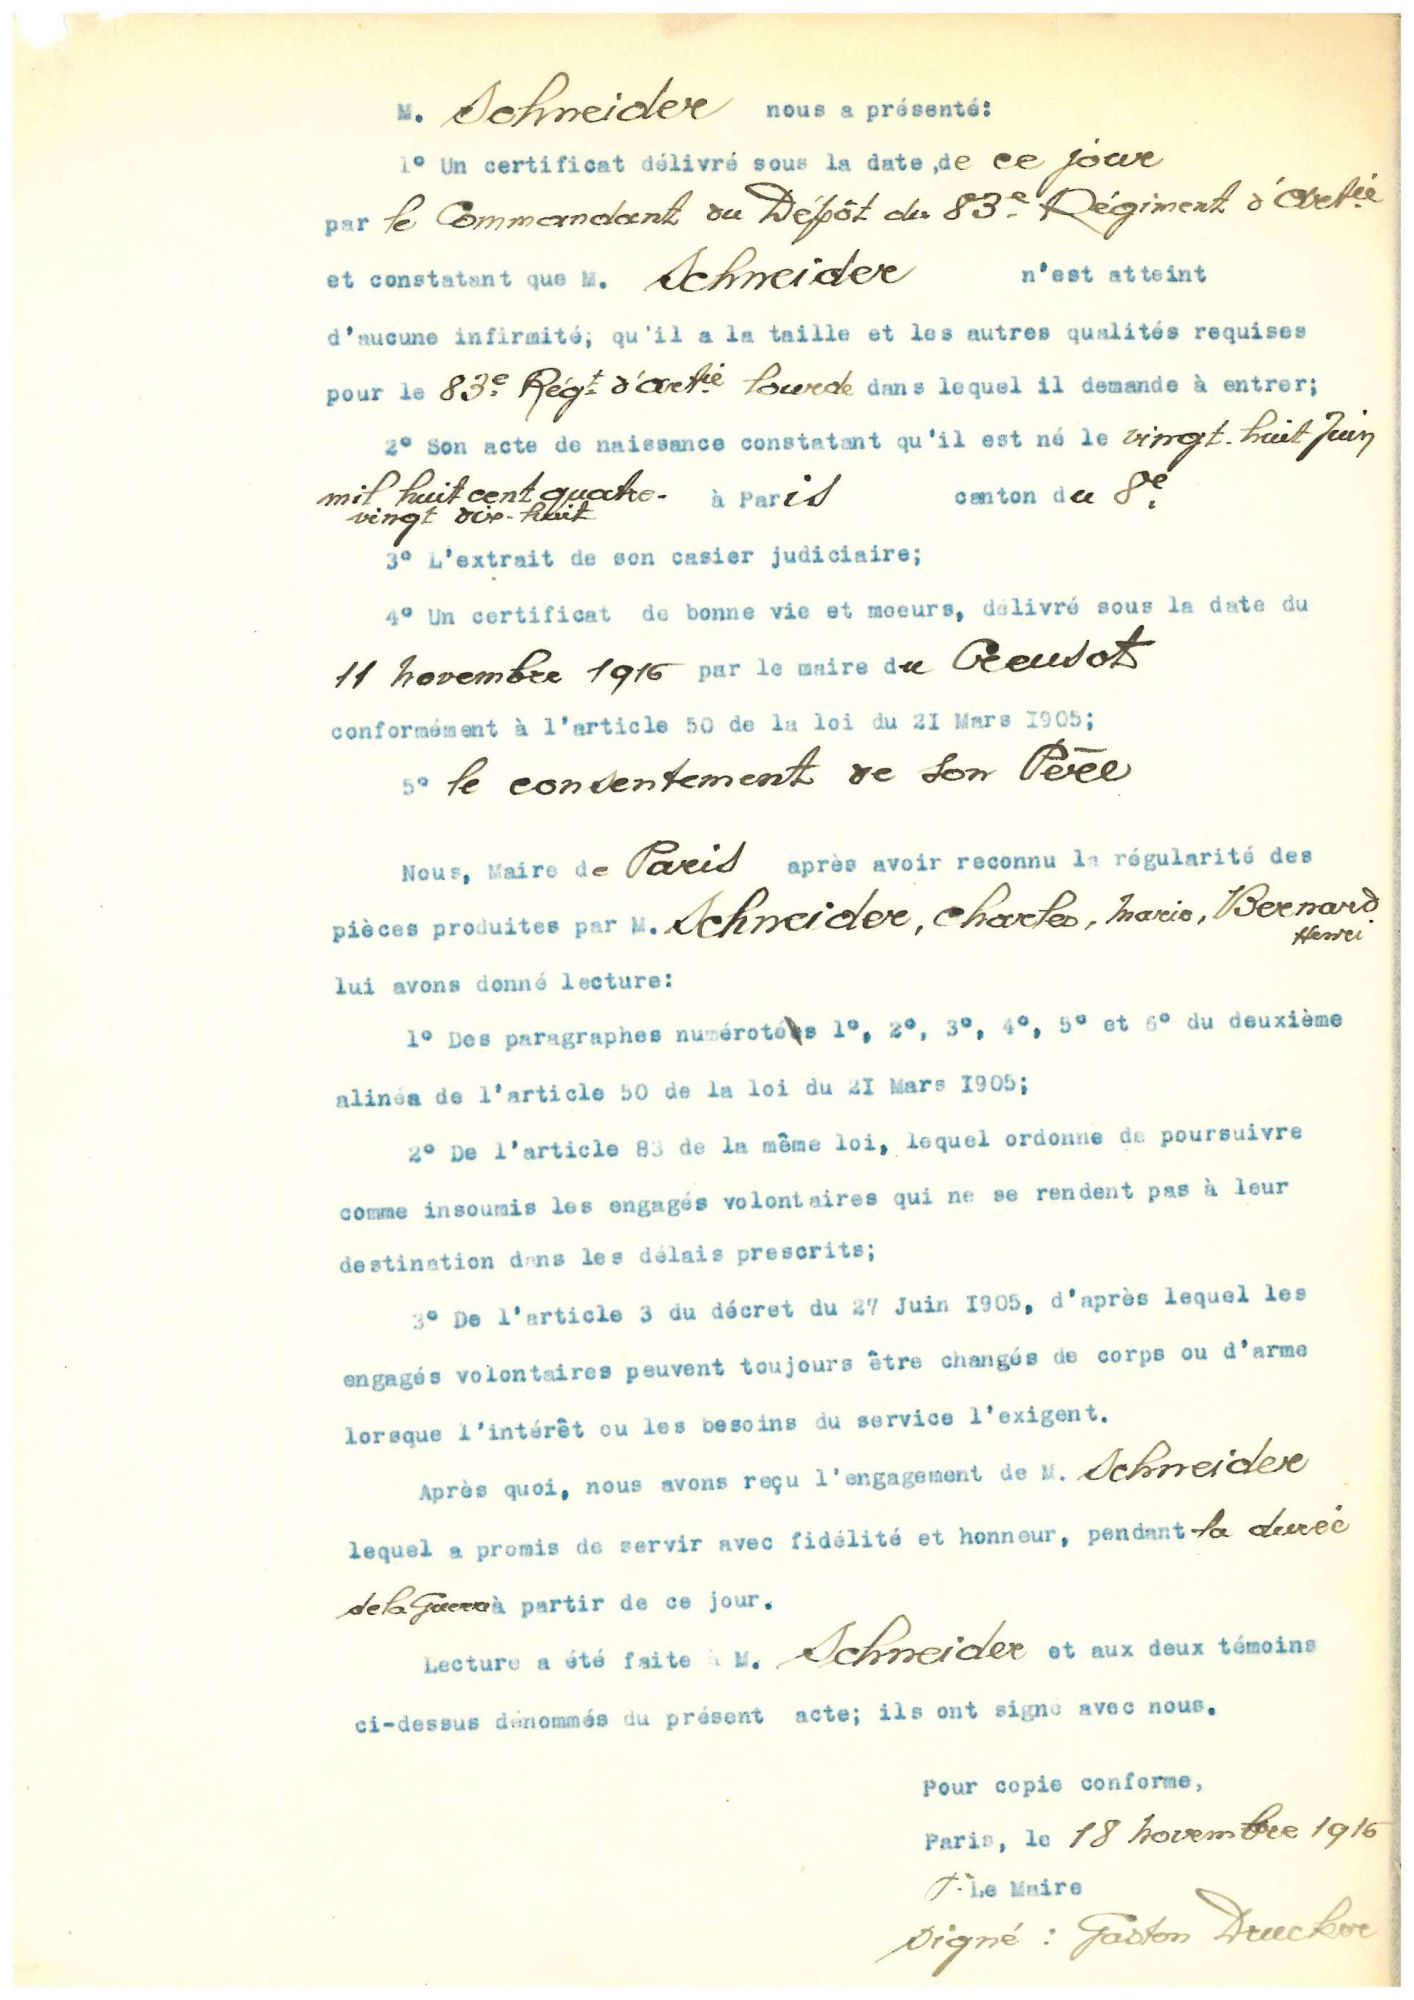 M. Schneider nous a présenté:
1° Un certificat délivré sous la date, de ce jour
par le Commandant du Dépôt du 83e Régiment d'Artie
et constatant que M. Schneider n'est atteint
d'aucune infirmité; qu'il a la taille et les autres qualités requises
pour le 83e Régt d'Artie lourde dans lequel il demande à entrer;
2° Son acte de naissance constatant qu'il est né le vingt-huit Juin
mil huit cent quatre-
vingt dix-huit à Paris canton du 8e.
3° L'extrait de son casier judiciaire;
4° Un certificat de bonne vie et moeurs, délivré sous la date du
11 novembre 1916 par le maire du Creusot
conformément à l'article 50 de la loi du 2I Mars I905;
5° le consentement de son Père
Nous, Maire de Paris après avoir reconnu la régularité des
pièces produites par M. Schneider, Charles, Marie, Bernard
Henri
lui avons donné lecture:
1° Des paragraphes numérotés 1°, 2°, 3°, 4°, 5° et 6° du deuxième
alinéa de l'article 50 de la loi du 2I Mars I905;
2° De l'article 83 de la même loi, lequel ordonne de poursuivre
comme insoumis les engagés volontaires qui ne se rendent pas à leur
destination dans les délais prescrits;
3° De l'article 3 du décret du 27 Juin I905, d'après lequel les
engagés volontaires peuvent toujours être changés de corps ou d'arme
lorsque l'intérêt ou les besoins du service l'exigent.
Après quoi, nous avons reçu l'engagement de M. Schneider
lequel a promis de servir avec fidélité et honneur, pendant la durée
de la Guerre à partir de ce jour.
Lecture a été faite à M. Schneider et aux deux témoins
ci-dessus dénommés du présent acte; ils ont signé avec nous.
Pour copie conforme,
Paris, le 18 novembre 1916
P. Le Maire
Signé : Gaston Drucker